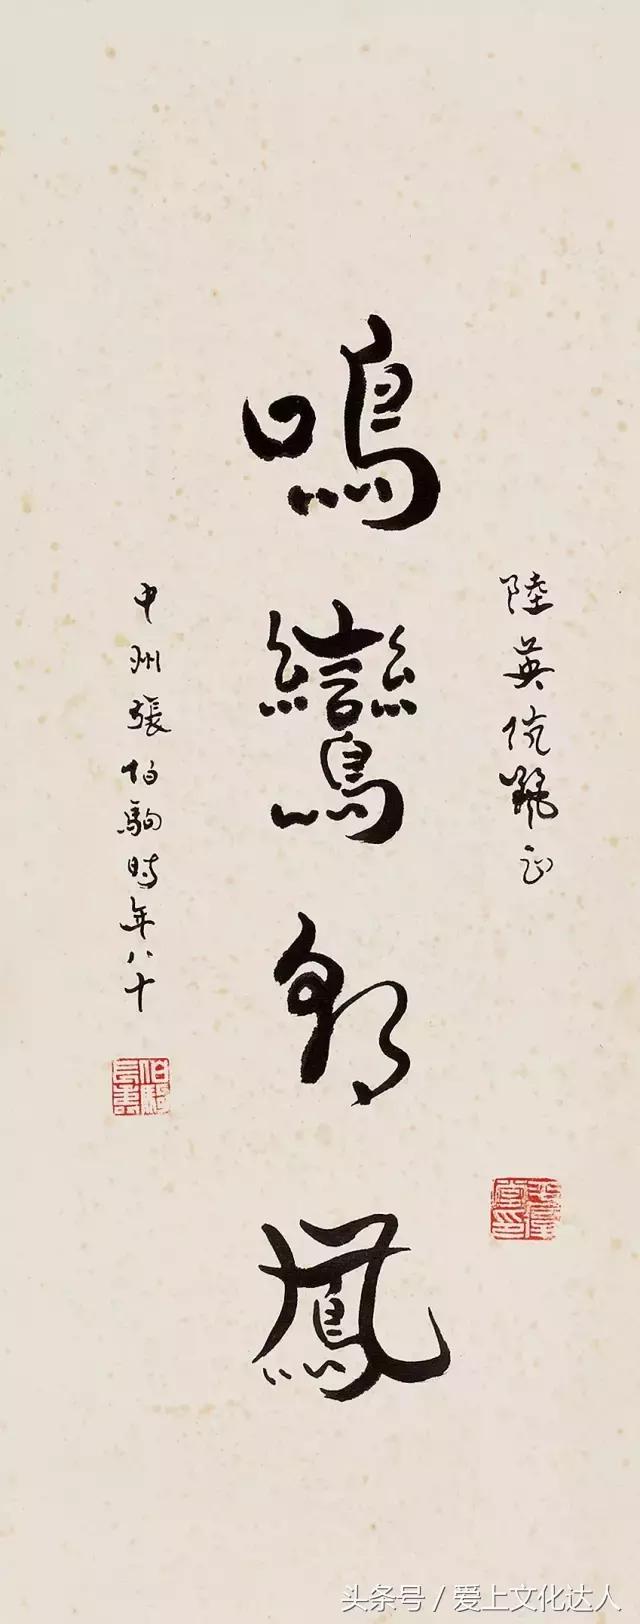 陸英伉儷正
鳴鸞鳳
中州張伯駒時年八十
伯駒長壽
平復堂印
头条号 / 爱上文化达人